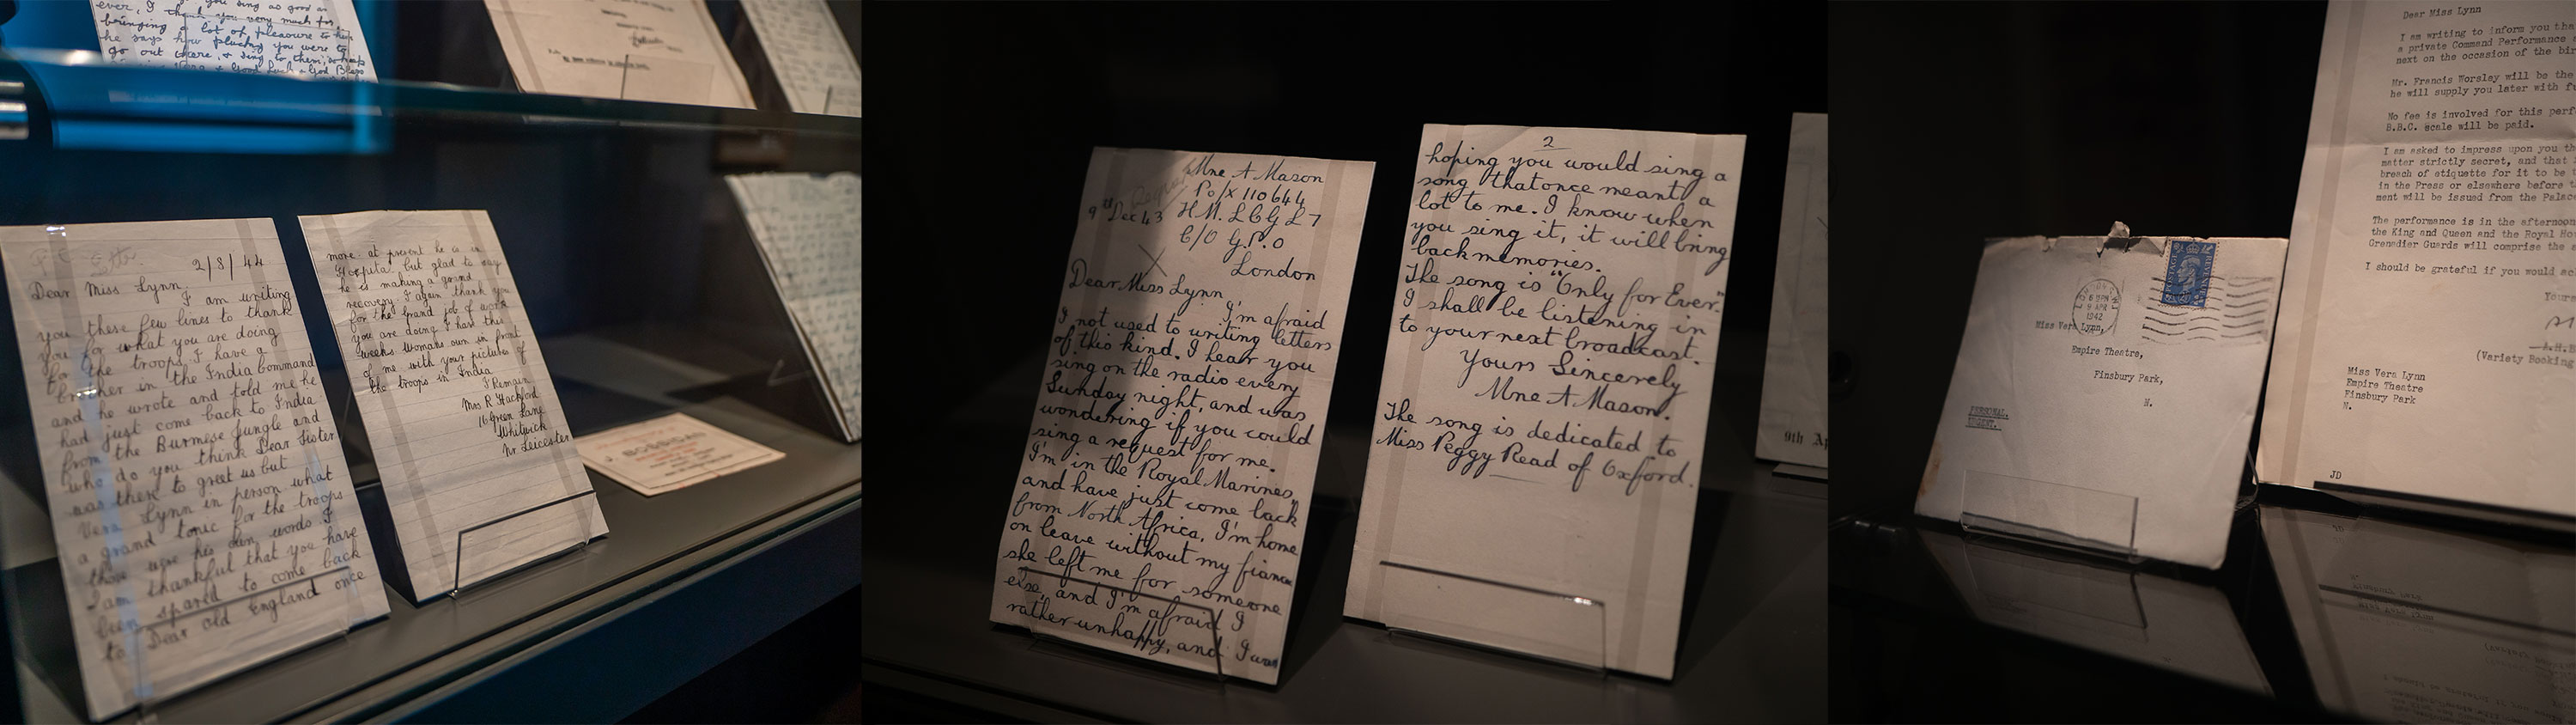 ever, I thank you very much for
bringing a lot of pleasure to him
he says how plucky you were to
go out there, & sing to them, so
Good Luck & God Bless
2/3/44
Dear Miss Lynn.
I am writing
you these few lines to thank
you for what you are doing
for the troops. I have a
brother in the India Command
and he wrote and told me he
had just come back to India
from the Burmese Jungle and
who do you think Dear Sister
was there to greet us but
Vera Lynn in person what
a grand tonic for the troops
those were his own words I
am thankful that you have
been spared to come back
to Dear old England once
more. at present he is in
Hospital but glad to say
he is making a grand
recovery. I again thank you
for the grand job of work
you are doing I had this
weeks Womans own in front
of me with your pictures of
the troops in India
I Remain
Mrs R Hackford
16 Green Lane
Whitwick
Nr Leicester
Mne A Mason
Po/X 110644
9th Dec 43 H.M. LCG L 7
C/O G.P.O
London
Dear Miss Lynn
I'm afraid
I not used to writing letters
of this kind. I hear you
sing on the radio every
Sunday night, and was
wondering if you could
sing a request for me.
I'm in the Royal Marines,
and have just come back
from North Africa, I'm home
on leave without my fiance
she left me for someone
else, and I'm afraid I
rather unhappy, and I was
2
hoping you would sing a
song that once meant a
lot to me. I know when
you sing it, it will bring
back memories.
The song is "Only for Ever"
I shall be listening in
to your next broadcast.
Yours Sincerely
Mne A Mason.
The song is dedicated to
Miss Peggy Read of Oxford.
9th Ap
LONDON
6 PM
9 APR
1942
POSTAGE
REVENUE
Miss Vera Lynn,
Empire Theatre,
Finsbury Park,
N.
PERSONAL.
URGENT.
Dear Miss Lynn
I am writing to inform you tha
a private Command Performance
next on the occasion of the bir
Mr. Francis Worsley will be the
he will supply you later with fu
No fee is involved for this perf
B.B.C. scale will be paid.
I am asked to impress upon you th
matter strictly secret, and that
breach of etiquette for it to be
in the Press or elsewhere before
ment will be issued from the Palac
The performance is in the afternoo
the King and Queen and the Royal Ho
Grenadier Guards will comprise the
I should be grateful if you would ac
Yours
(Variety Booking
Miss Vera Lynn
Empire Theatre
Finsbury Park
N.
JD